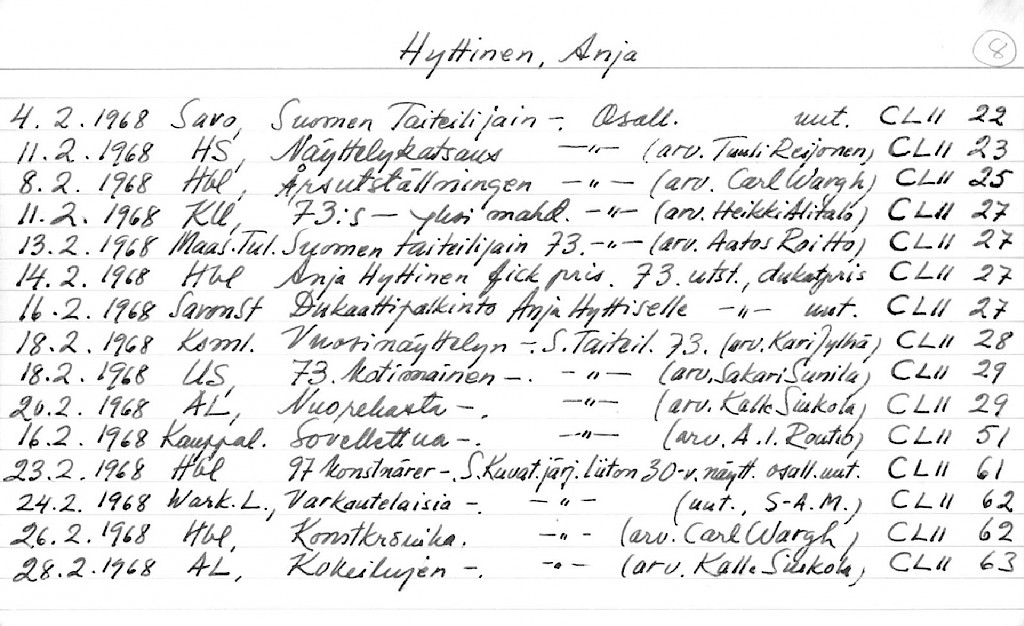 Hyttinen, Anja 8
4. 2. 1968 Savo, Suomen Taiteilijain -. Osall. uut. CLII 22
11. 2. 1968 HS, Näyttelykatsaus -"- (arv. Tuuli Reijonen) CLII 23
8. 2. 1968 Hbl, Årsutställningen -"- (arv. Carl Wargh) CLII 25
11. 2. 1968 KU, 73:s - yksi mahd. -"- (arv. Heikki Alitalo) CLII 27
13. 2. 1968 Maas.Tul. Suomen taiteilijain 73. -"- (arv. Aatos Roitto) CLII 27
14. 2. 1968 Hbl Anja Hyttinen fick pris. 73. utst., dukatpris CLII 27
16. 2. 1968 SavonSt Dukaattipalkinto Anja Hyttiselle -"- uut. CLII 27
18. 2. 1968 Koml. Vuosinäyttelyn -. S. Taiteil. 73. (arv. Kari Jylhä) CLII 28
18. 2. 1968 US, 73. kotimainen -. -"- (arv. Sakari Sunila) CLII 29
20. 2. 1968 AL, -. -"- (arv. Kalle) CLII 29
16. 2. 1968 Kauppal. Sovellettua -. -"- (arv. A. I. Routio) CLII 51
23. 2. 1968 Hbl 97 konstnärer - S. Kuvat.järj. liiton 30-v. näytt. osall. uut. CLII 61
24. 2. 1968 Wark. L., Varkautelaisia -. -"- (uut., S-A.M.) CLII 62
26. 2. 1968 Hbl, Konstkrönika. -"- (arv. Carl Wargh) CLII 62
28. 2. 1968 AL, Kokeilujen -. -"- (arv. Kalle) CLII 63